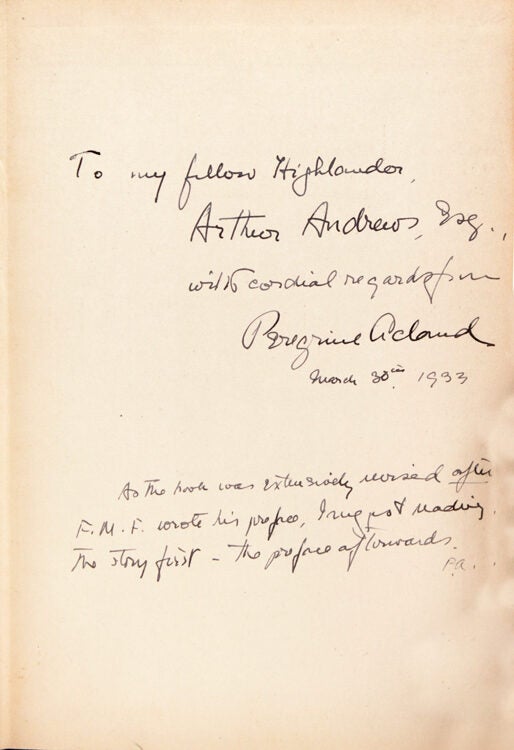 To my fellow Highlander,
Arthur Andrews, Esq.,
with cordial regards from
Peregrine Acland
March 30th 1933
As the book was extensively revised after
F. M. F. wrote his preface, I suggest reading
the story first – the preface afterwards.
P.A.